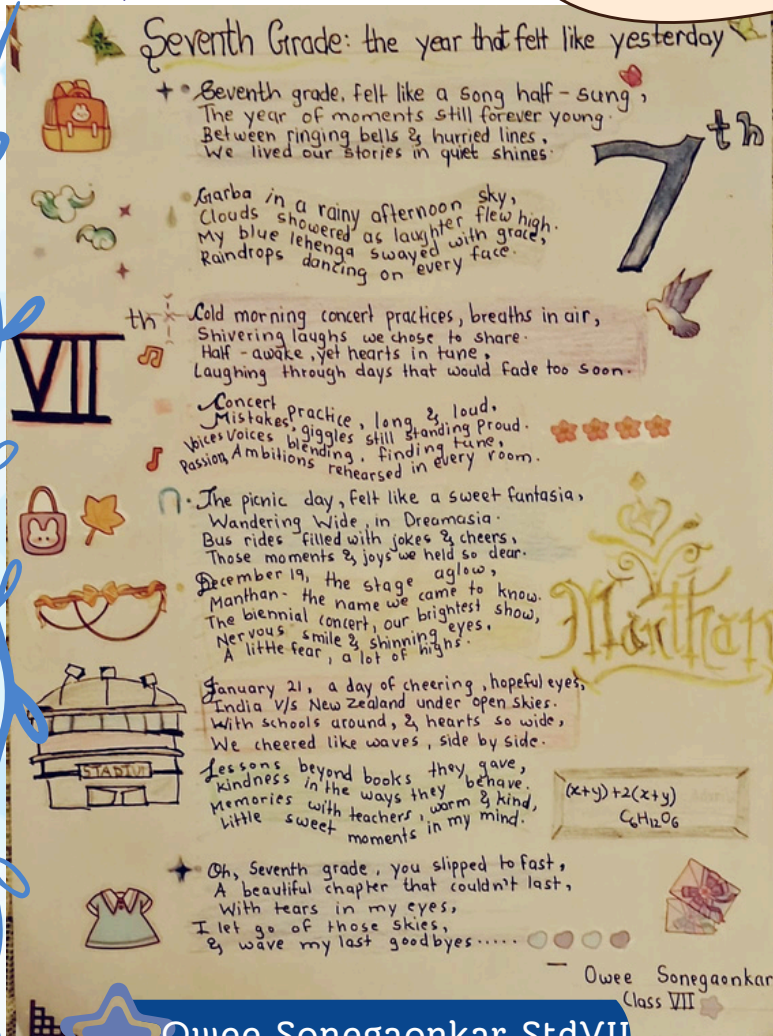 Seventh Grade: the year that felt like yesterday
Seventh grade, felt like a song half-sung,
The year of moments still forever young.
Between ringing bells & hurried lines,
We lived our stories in quiet shines.
7th
Garba in a rainy afternoon sky,
Clouds showered as laughter flew high.
My blue lehenga swayed with grace,
Raindrops dancing on every face.
VII th
Cold morning concert practices, breaths in air,
Shivering laughs we chose to share.
Half-awake, yet hearts in tune,
Laughing through days that would fade too soon.
Concert practice, long & loud,
Mistakes, giggles still standing proud.
Voices Voices blending, finding tune,
Passion, Ambitions rehearsed in every room.
The picnic day, felt like a sweet fantasia,
Wandering Wide, in Dreamasia.
Bus rides filled with jokes & cheers,
Those moments & joys we held so dear.
December 19, the stage aglow,
Manthan- the name we came to know.
The biennial concert, our brightest show,
Nervous smile & shinning eyes,
A little fear, a lot of highs.
Manthan
January 21, a day of cheering, hopeful eyes,
India V/s New Zealand under open skies.
With schools around, & hearts so wide,
We cheered like waves, side by side.
STADIUM
Lessons beyond books they gave,
kindness in the ways they behave.
Memories with teachers, warm & kind,
Little sweet moments in my mind.
(x+y)+2(x+y)
C₆H₁₂O₆
Oh, Seventh grade, you slipped to fast,
A beautiful chapter that couldn't last,
With tears in my eyes,
I let go of those skies,
& wave my last goodbyes.....
— Owee Sonegaonkar
Class VII
Owee Sonegaonkar StdVII